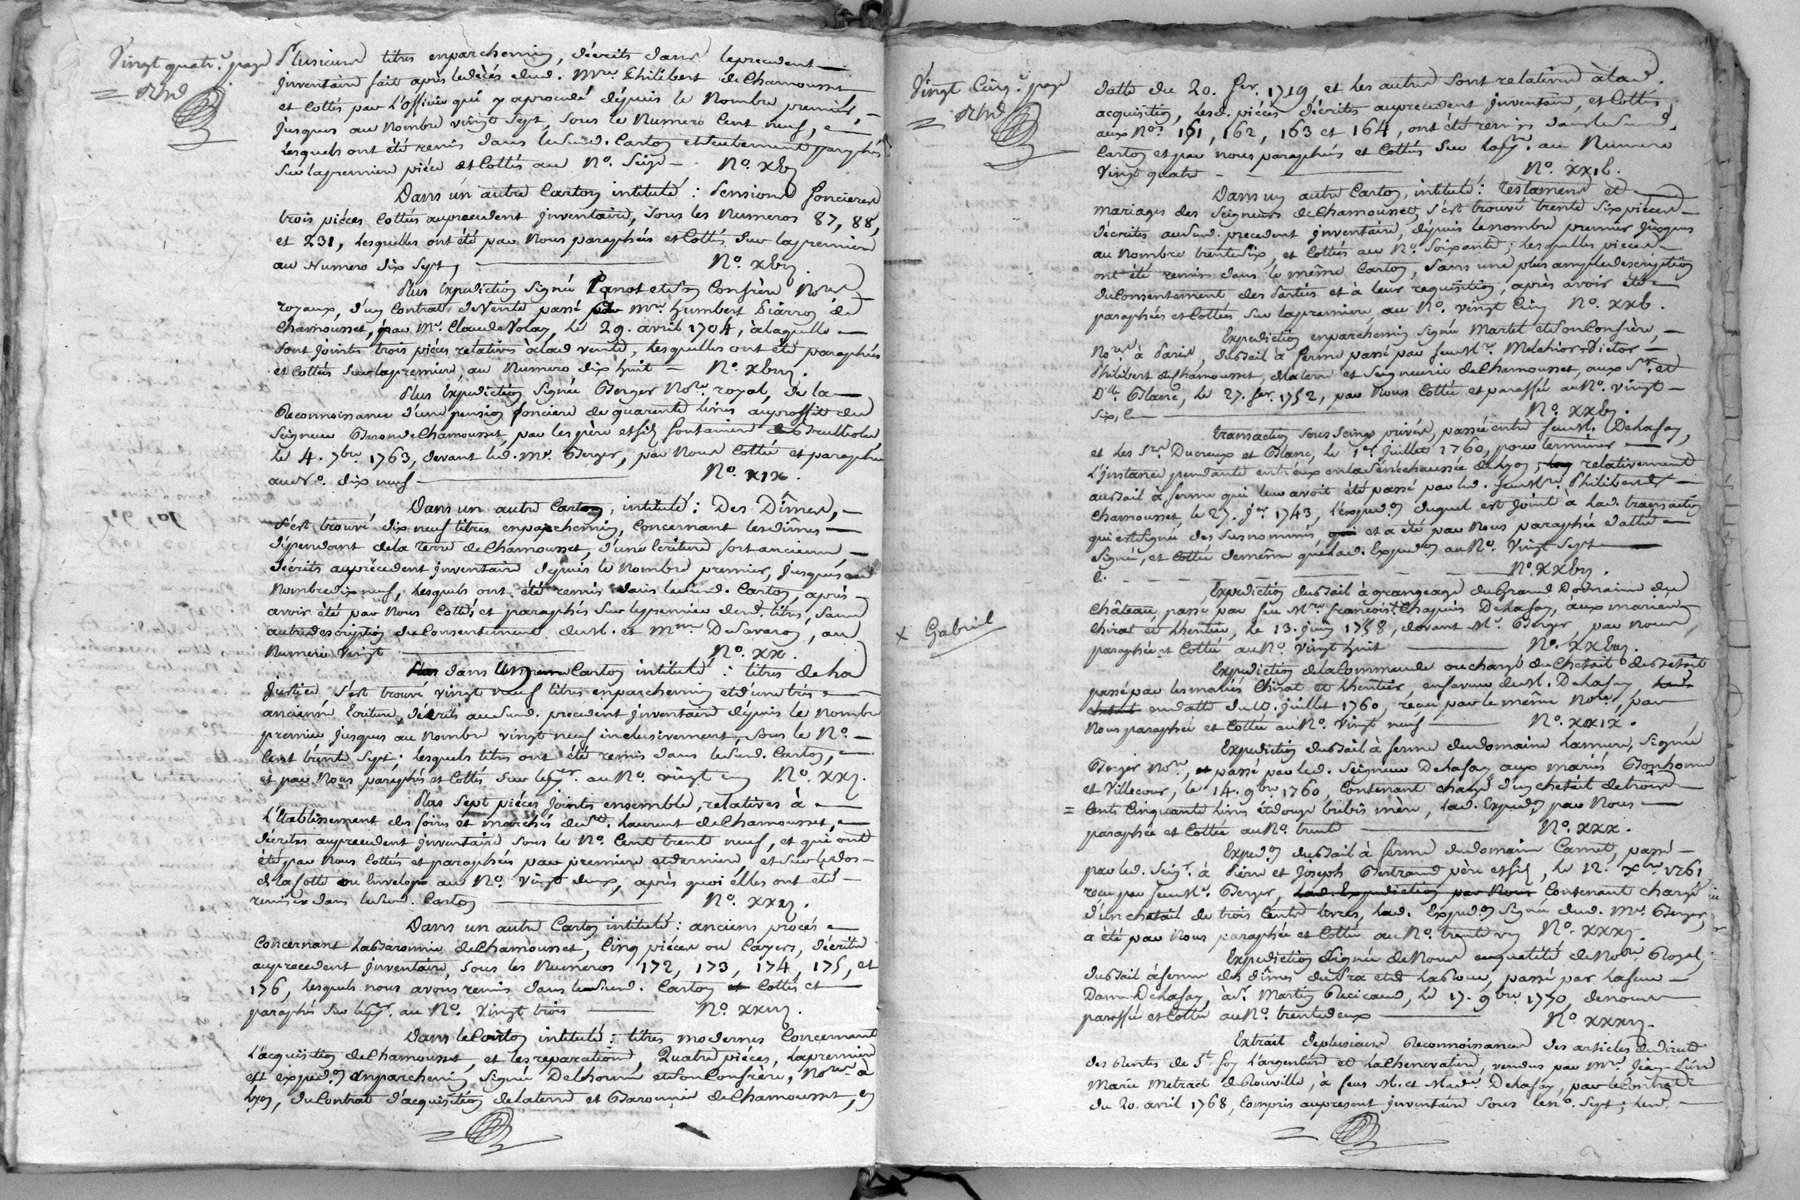 Vingt quatr.e page
Plusieurs titres en parchemin, décrits dans le precedent
Inventaire fait après le décès dud. Mre Philibert de Chamousset
et Cottés par l'officier qui y a procedé depuis le Nombre premier,
jusques au nombre vingt sept, sous le Numero Cent neuf,
lesquels ont été remis dans le susd. Carton et seulement paraphés
sur la premiere piéce et Cottés au No. Seize No. xbj
Dans un autre Carton intitulé: Pensions foncieres
trois piéces Cottées au precedent Inventaire, sous les Numeros 87, 88,
et 231, lesquelles ont été par Nous paraphées et Cottées sur la premiere
au Numero dix sept, No. xbij.
Plus Expedition signée et son Confrère Nores
royaux, d'un Contrat de Vente passé Mre Humbert Pierron de
Chamousset, par Me. Claude Volay, le 29. avril 1704, à laquelle
sont joints trois piéces relatives à lad. vente, lesquelles ont été paraphées
et Cottées sur la premiere au Numero dix huit No. xbiij.
Plus Expedition Signée Berger Nore royal, de la
Reconnoissance d'une pension fonciere de quarente livres au proffit du
Seigneur Baron de Chamousset, par les père et fils Fontaine
le 4. 7bre 1763, devant led. Me. Berger, par Nous Cottée et paraphée
au No. dix neuf No. xix.
Dans un autre Carton, intitulé: Des Dîmes,
s'est trouvé dix neuf titres en parchemin, Concernant les dîmes
dépendant de la Terre de Chamousset, d'une Ecriture fort ancienne,
décrits au précédent inventaire depuis le Nombre premier, jusques au
Nombre dix neuf, lesquels ont été remis dans le susd. Carton, après
avoir été par Nous Cottés et paraphés sur le premier desd. titres, sans
autre description du Consentement du Sr. et Mme De Savaron, au
Numero Vingt No. xx.
dans Carton intitulé: titres de la
Justice s'est trouvé vingt neuf titres en parchemin et d'une très
ancienne Ecriture, décrits au susd. precedent inventaire depuis le Nombre
premier jusques au Nombre vingt neuf inclusivement, sous le No.
Cent trente Sept; lesquels titres ont été remis dans le susd. Carton,
et par Nous paraphés et Cottés sur le pr. au No. vingt un No. xxj.
Plus Sept piéces jointes ensemble, relatives à
l'Etablissement des foires et marchés de St. Laurent de Chamousset,
décrites au precedent Inventaire sous le No. Cent trent neuf, et qui ont
été par Nous Cottés et paraphés par premiere et derniere, et sur le dos
de la Cotte ou Envelope au No. Vingt deux, après quoi elles ont été
remises dans le susd. Carton No. xxij.
Dans un autre Carton intitulé: anciens procès
Concernant la Baronnie de Chamousset, Cinq piéces ou Cayers, décrits
au precedent Inventaire, sous les Numeros 172, 173, 174, 175, et
176, lesquels nous avons remis dans le susd. Carton Cottés et
paraphés sur le pr. au No. Vingt trois No. xxiij.
Dans le Carton intitulé: titres modernes Concernant
l'acquisition de Chamousset, et les reparations, Quatre piéces, la premiere
est expedon en parchemin, signée Delhorme et son Confrère, Nores à
Lyon, du Contrat d'acquisition de la terre et Baronnie de Chamousset, en
Vingt Cinq.e page
datte du 20. fer. 1719, et les autres sont relatives à lad.
acquisition, lesd. piéces décrites au precedent Inventaire, et Cottées
aux Nos 161, 162, 163 et 164, ont été remises dans le susd.
Carton et par nous paraphées et Cottées sur la pre. au Numero
Vingt quatre No. xxib.
Dans un autre Carton, intitulé: Testaments et
mariages des Seigneurs de Chamousset, s'est trouvé trente six piéces
décrites au susd. precedent inventaire, depuis le nombre premier jusques
au Nombre trente six, et Cottées au No. Soixante; lesquelles piéces
ont été remises dans le même Carton, sans une plus ample description
du Consentement des Parties et à leur requisition, après avoir été
paraphées et Cottées sur la premiere, au No. vingt Cinq No. xxb.
Expedition en parchemin signée Martel et son Confrère,
Nores à Paris, du Bail à ferme passé par feu Mr. Melchior
Philibert de Chamousset, de la terre et Seigneurie de Chamousset, aux Sr. et
Dlle. Blanc, le 27. fer. 1752, par Nous Cottée et paraffée au No. vingt
Six, No. xxbj.
transaction sous seing privé, passée entre feu M. Delafay,
et les Srs. Ducreux et Blanc, le 1er Juillet 1760, pour terminer
l'Instance pendante entr'eux en la Sénéchaussée de Lyon, relativement
au Bail à ferme qui leur avoit été passé par led. feu Mre. Philibert
Chamousset, le 27. 1743, l'expedon duquel est Joint à lad. transaction
qui est signée des susnommés, et a été par Nous paraphée
signé, et Cottée de même que lad. Expedon au No. Vingt Sept
No. xxbij.
Expedition du Bail à grangeage du Grand Domaine du
Château, passé par feu Mre. François Chapuis Delafay, aux mariés
× Gabriel
Chirat et Lhentier, le 13. Juin 1758, devant Me. Berger par nous
paraphée et Cottée au No. Vingt huit No. xxbiij.
Expedition de la Commande ou charge du Chetail dud. Bail
passé par les mariés Chirat et Lhentier, en faveur du Sr. Delafay
en datte du 10. Juillet 1760, reçue par le même Nore, par
Nous paraphée et Cottée au No. Vingt neuf No. xxix.
Expedition du Bail à ferme du domaine Lamure, signée
Berger Nore, passé par led. Seigneur Delafay aux mariés Bonhome
et Villecour, le 14. 9bre 1760, Contenant charge d'un chetail de trois
Cents Cinquante livres et douze brebis mère, lad. Expedon par Nous
paraphée et Cottée au No. trente No. xxx.
Expedon du Bail à ferme du domaine Carret, passé
par led. Seigr. à Pierre et Joseph Bertrand père et fils, le 12. xbre 1761
reçu par feu Me. Berger, lad. Expedition par Nous Contenant charge
d'un chetail de trois Cents livres, lad. Expedon signée dud. Me. Berger,
a été par Nous paraphée et Cottée au No. trente un No. xxxj.
Expedition signée de Nous en qualité de Nore Royal,
du Bail à ferme des dîmes du Pra et de passé par la feue
Dame Delafay, à Sr. Martin Recicaud, le 17. 9bre 1770, de nous
paraffée et Cottée au No. trente deux No. xxxij.
Extrait de plusieurs Reconnoissances des articles de Directe
des Rentes de St. foy l'argentiere et La Chenevatiere, vendus par Mre. Jean
Marie Metrad de Rouville, à feus M. et Made. Delafay, par le Contrat
du 20. avril 1768, Compris au present Inventaire sous le No. Sept; led.